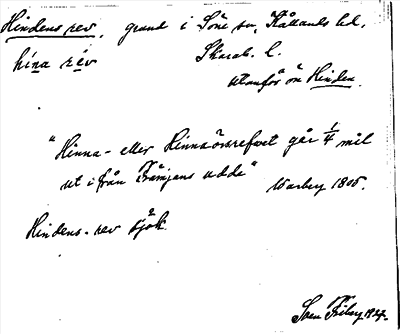 Hindens rev, grund i Söne sn, Kållands hd,
hina rev Skarab. l.
utanför ön Hinden.
"Hinna- eller Hinnaörsrefvet går 1/4 mil
ut ifrån Främjans udde" Warberg 1805.
Hindens-rev Sjök.
Sven Friberg 1927.